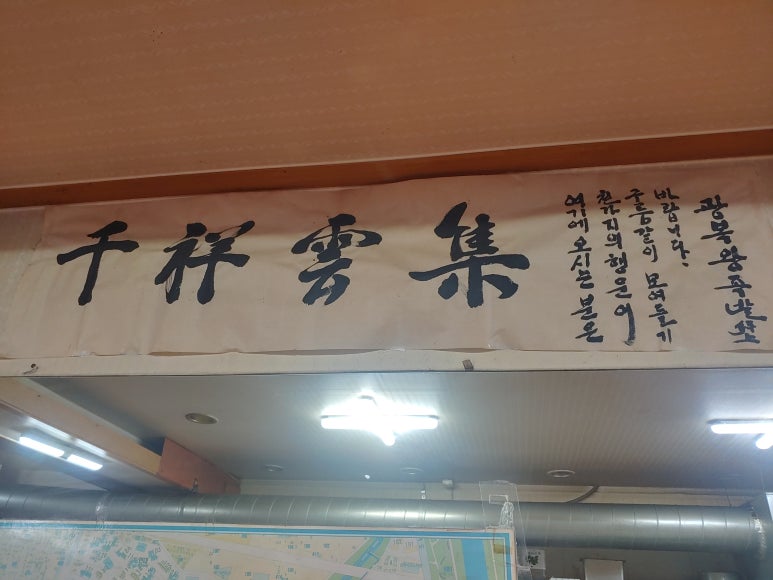 千祥雲集
여기에 오시는 분은
천가지의 행운이
구름같이 모여들기
바랍니다.
광복왕족발